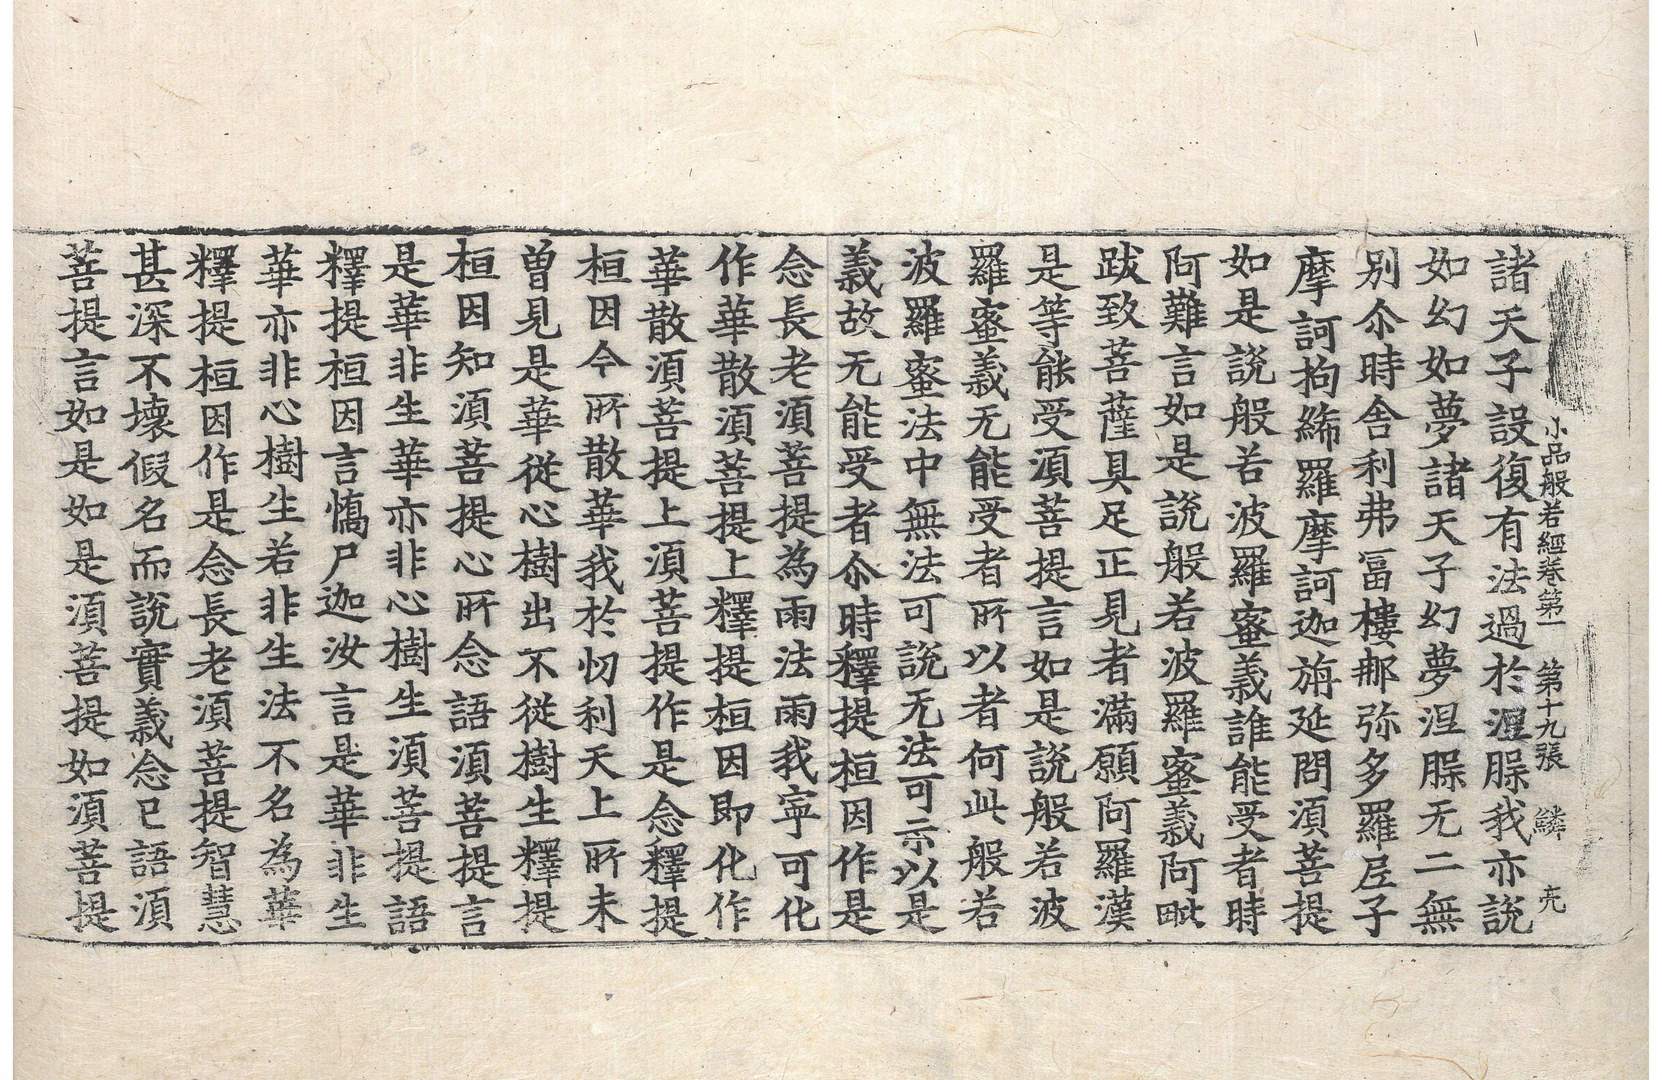 小品般若經卷第一 第十九張 鱗
諸天子設復有法過於涅槃我亦說
如幻如夢諸天子幻夢涅槃无二無
別尒時舍利弗冨樓那弥多羅尼子
摩訶拘絺羅摩訶迦旃延問湏菩提
如是說般若波羅蜜義誰能受者時
阿難言如是說般若波羅蜜義阿毗
跋致菩薩具足正見者滿願阿羅漢
是等能受湏菩提言如是說般若波
羅蜜義无能受者所以者何此般若
波羅蜜法中無法可說无法可示以是
義故无能受者尒時釋提桓因作是
念長老湏菩提為雨法雨我寧可化
作華散湏菩提上釋提桓因即化作
華散湏菩提上湏菩提作是念釋提
桓因今所散華我於忉利天上所未
曾見是華從心樹出不從樹生釋提
桓因知湏菩提心所念語湏菩提言
是華非生華亦非心樹生湏菩提語
釋提桓因言憍尸迦汝言是華非生
華亦非心樹生若非生法不名為華
釋提桓因作是念長老湏菩提智慧
甚深不壞假名而說實義念已語湏
菩提言如是如是湏菩提如湏菩提